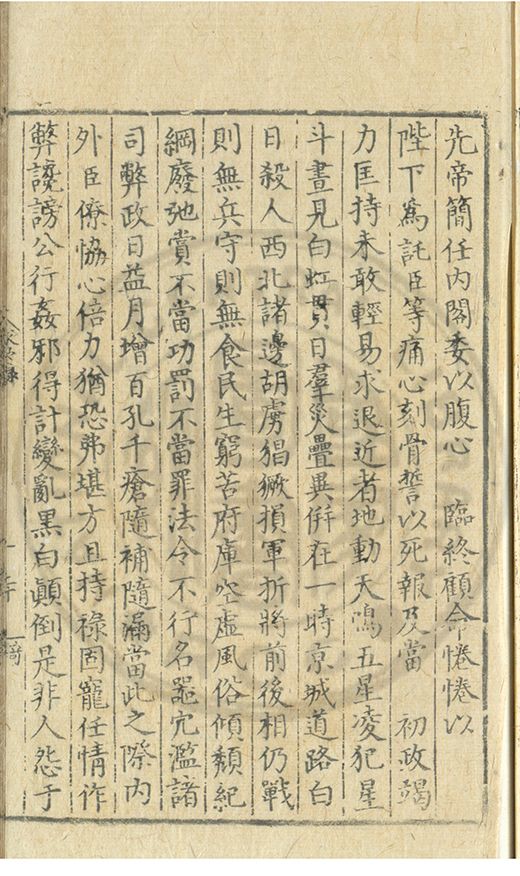 先帝簡任内閣委以腹心　臨終顧命惓惓以
陛下爲託臣等痛心刻骨誓以死報及當　初政竭
力匡持未敢輕易求退近者地動天鳴五星凌犯星
斗晝見白虹貫日羣災疊異倂在一時京城道路白
日殺人西北諸邊胡虜猖獗損軍折將前後相仍戰
則無兵守則無食民生窮苦府庫空虛風俗傾頹紀
綱廢弛賞不當功罰不當罪法令不行名器冗濫諸
司弊政日益月增百孔千瘡隨補隨漏當此之際内
外臣僚協心倍力猶恐弗堪方且持祿固寵任情作
弊讒謗公行姦邪得計變亂黑白顚倒是非人怨于